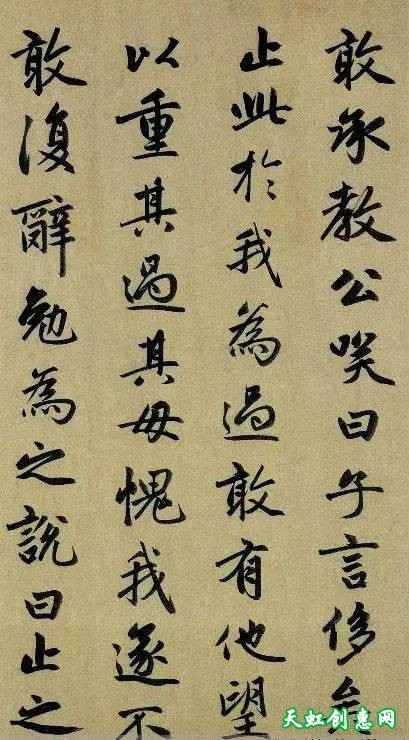 敢承教公咲曰子言侈
止此於我為過敢有他望
以重其過其毋愧我遂不
敢復辭勉為之說曰止之
天虹创惠网